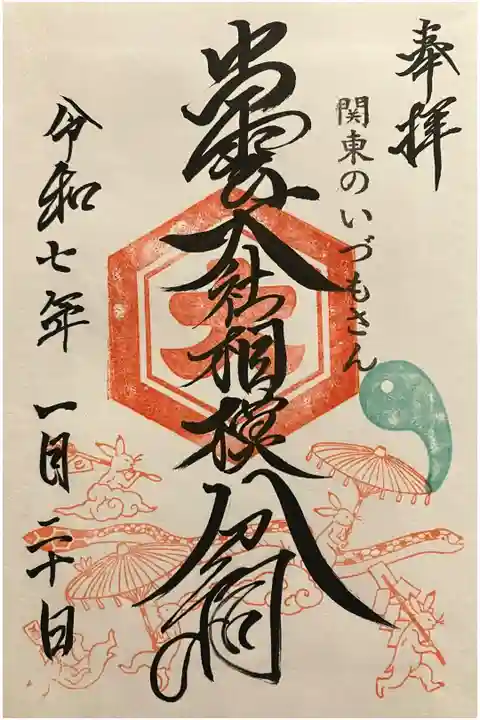 奉拝
関東のいづもさん
出雲大社相模分祠
令和七年 一月 二十日